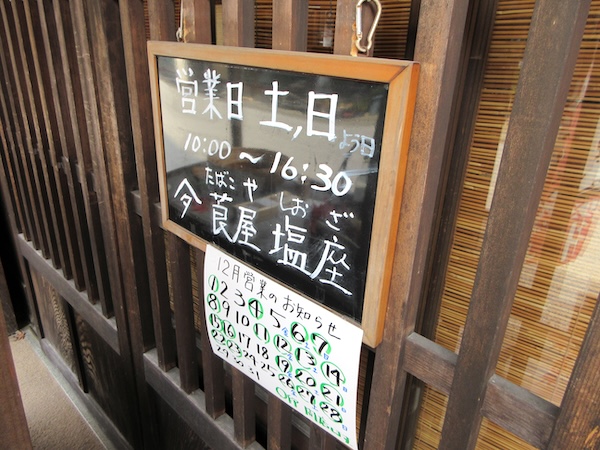 営業日 土,日よう日
10:00～16:30
たばこや しおざ
今莨屋 塩座
12月営業のお知らせ
1 2 3 4 5 6 7
8 9 10 11 12 13 14
15 16 17 18 19 20 21
22 23 24 25 26 27 28